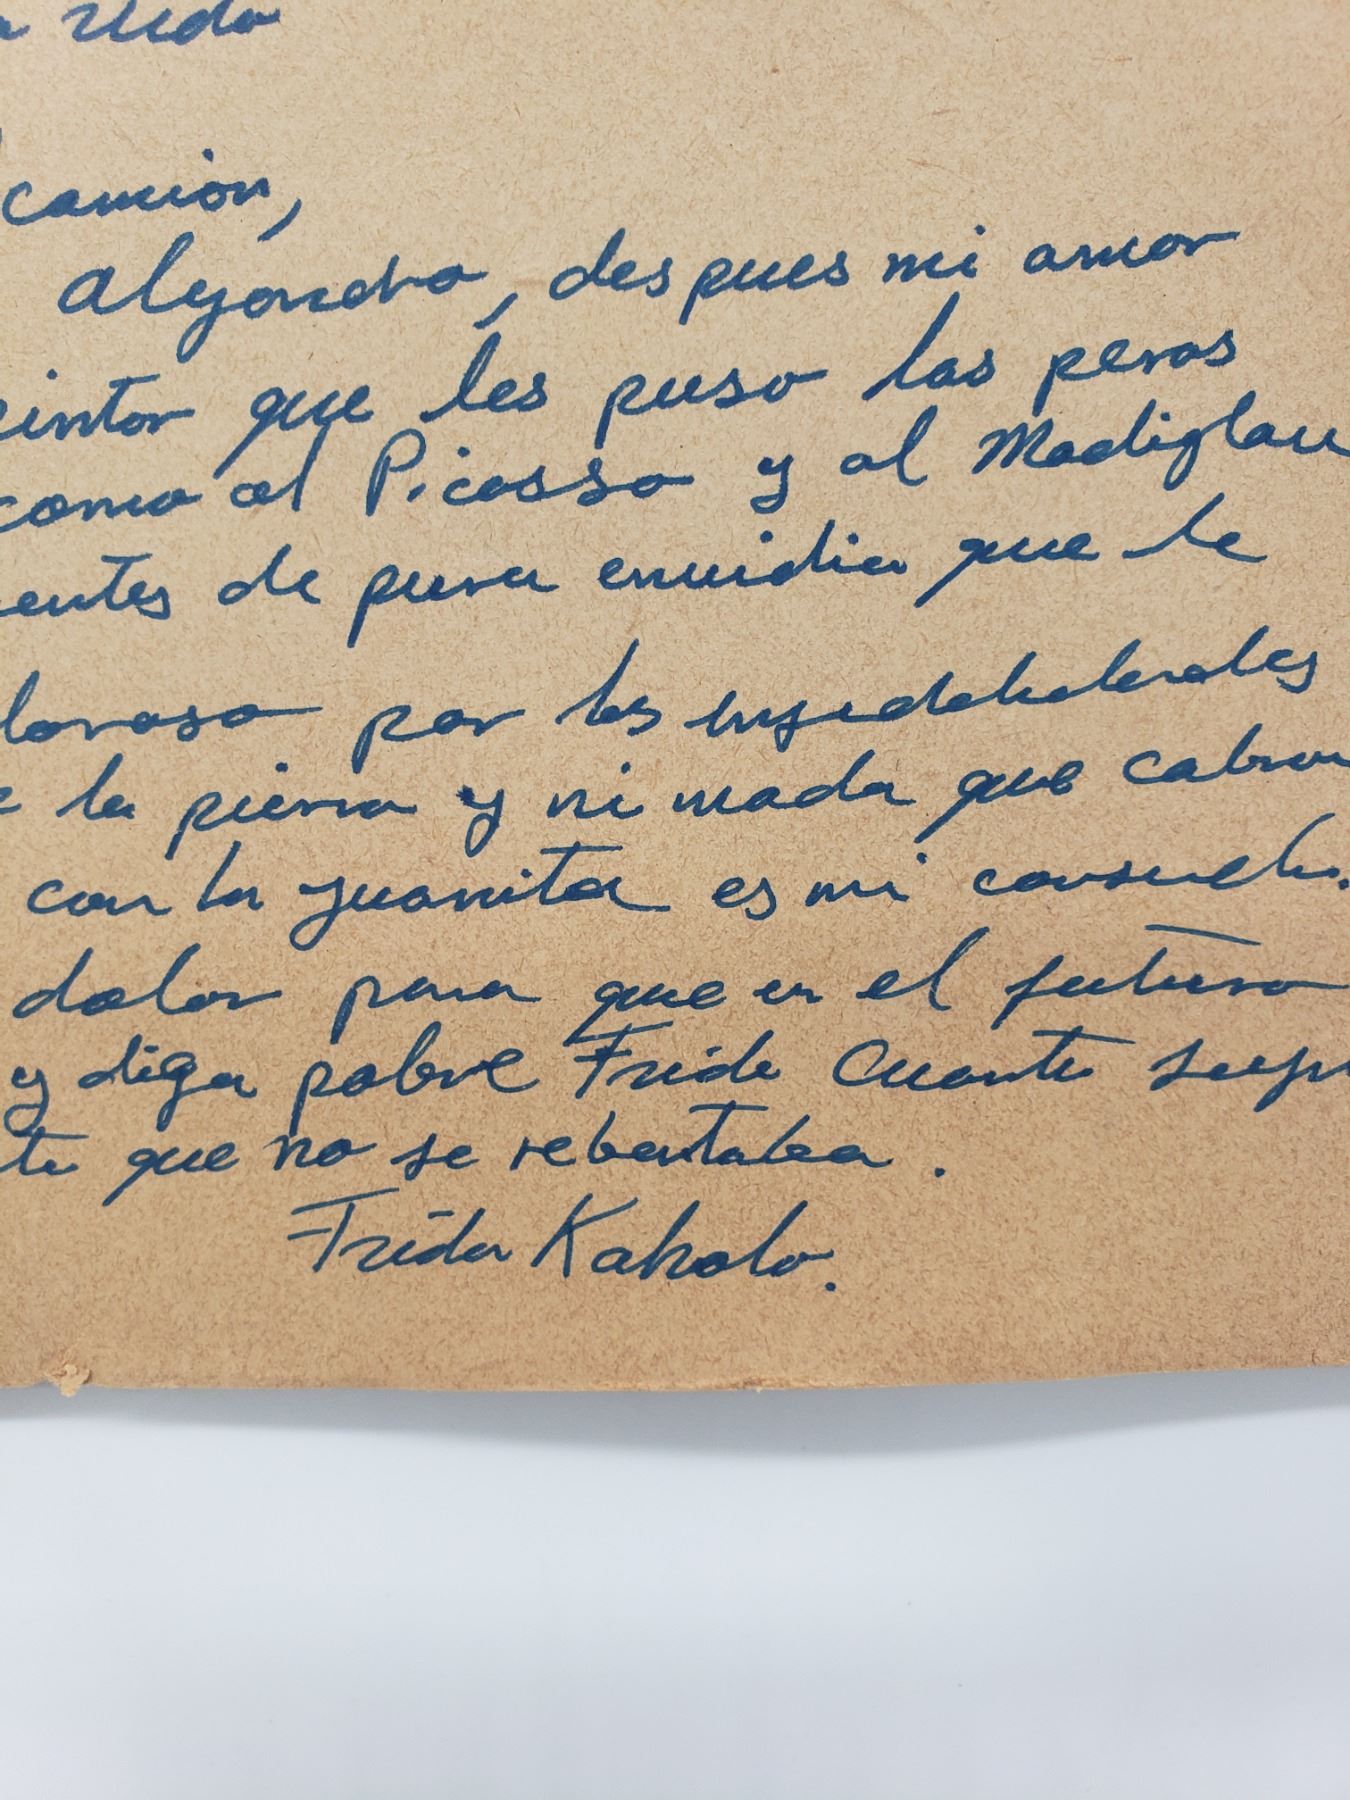 camion,
alejandro, despues mi amor
pintor que les puso las peras
como al Picasso y al Modiglau
entes de pura enuidia que le
loroso por los
la pierna y ni mada que cabron
con la Juanita es mi consuelo.
dolor para que en el futuro
y diga pobre Frida Cuanto
te que no se rebentaba.
Frida Kahalo.